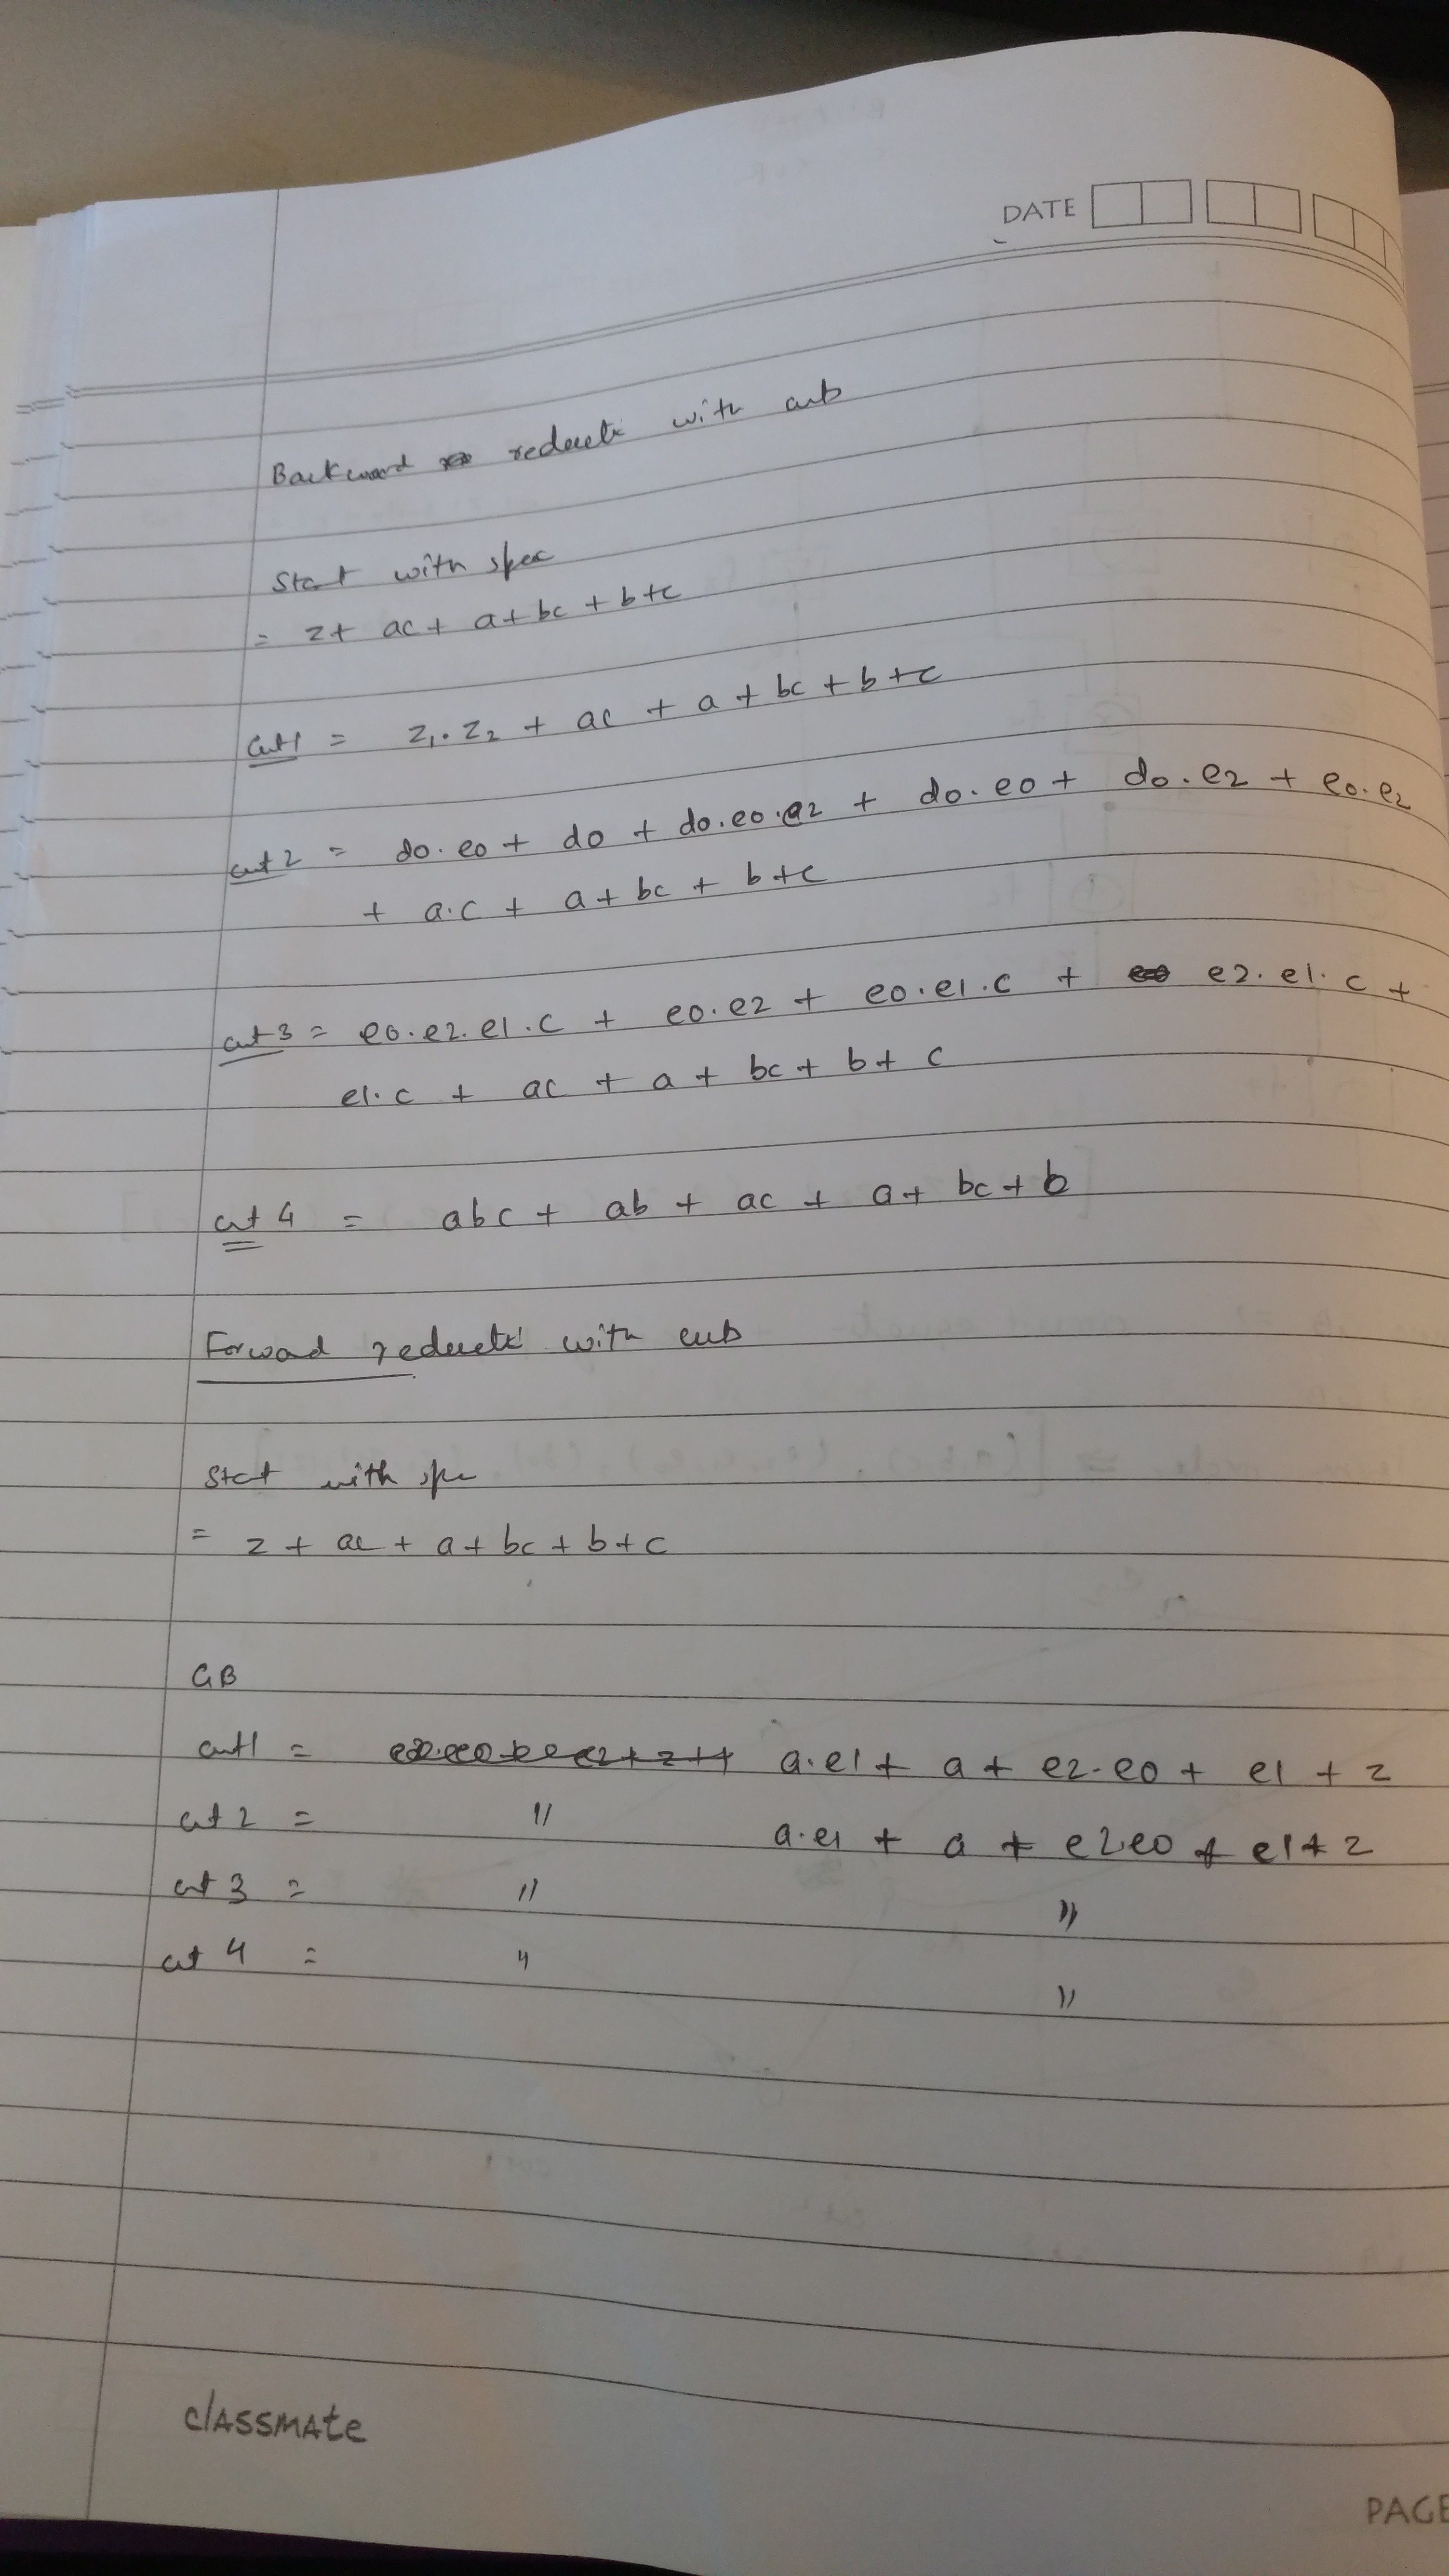 DATE
Backward reducti with cuts
Start with spec
= z + ac + a + bc + b + c
cut1 = z1. z2 + ac + a + bc + b + c
cut 2 = do. eo + do + do.eo.e2 + do. eo + do. e2 + eo. e2
+ a.c + a + bc + b + c
cut 3 = eo. e2. e1. c + eo. e2 + eo. e1. c + e2. e1. c +
e1. c + ac + a + bc + b + c
cut 4 = abc + ab + ac + a + bc + b
Forward reducti with cuts
Start with spec
= z + ac + a + bc + b + c
GB
cut1 = a.e1 + a + e2.eo + e1 + z
cut 2 = " a.e1 + a + e2.eo + e1 + z
cut 3 = " "
cut 4 = " "
classmate
PAGE